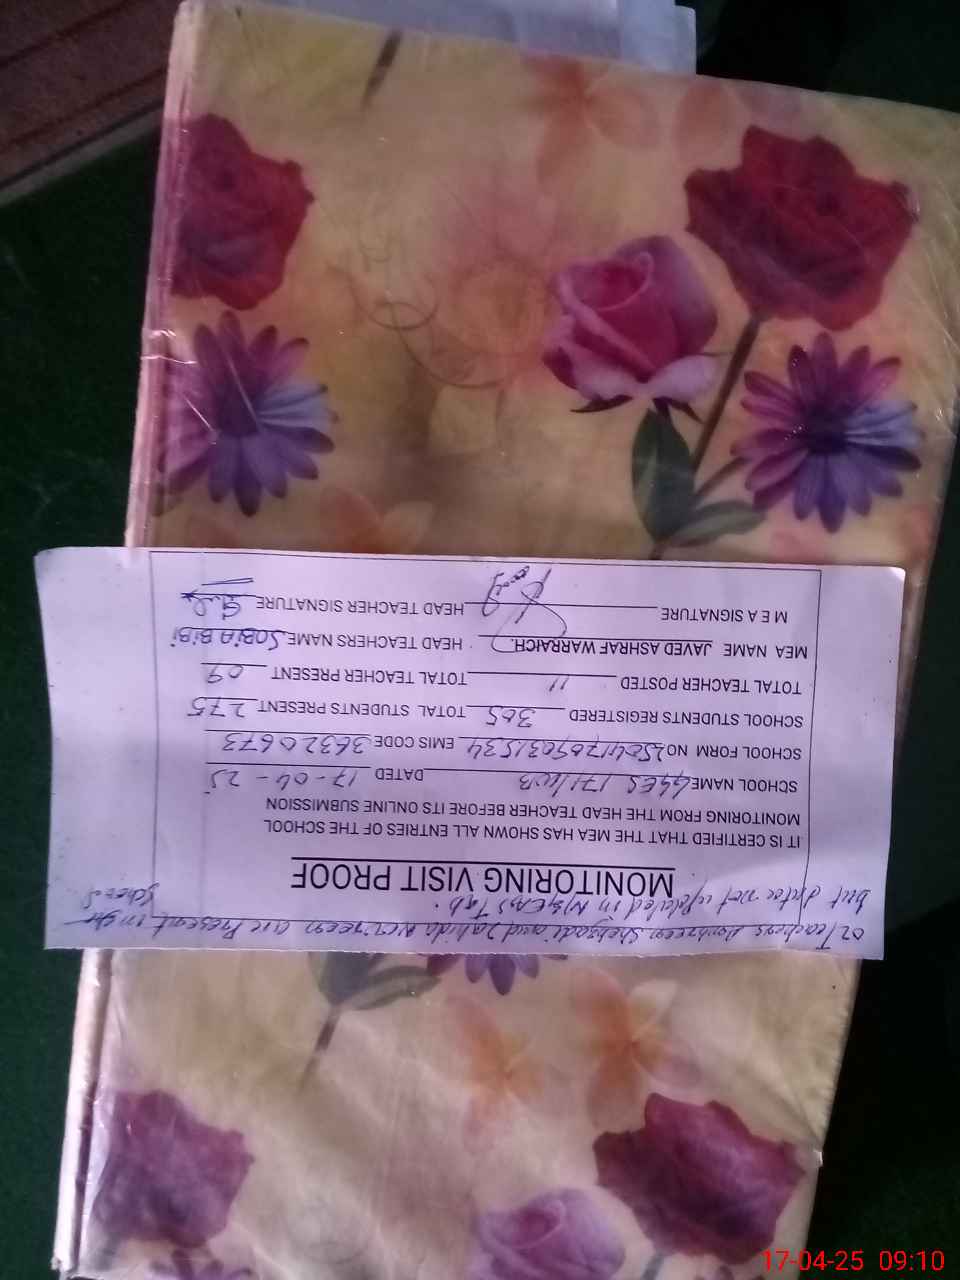 02 Teachers Ambreen Shehzadi and Zahida Nasreen are Present in the School
but data not updated in M&EAs Tab.
MONITORING VISIT PROOF
IT IS CERTIFIED THAT THE MEA HAS SHOWN ALL ENTRIES OF THE SCHOOL
MONITORING FROM THE HEAD TEACHER BEFORE ITS ONLINE SUBMISSION
SCHOOL NAME GGES 171/WB DATED 17-04-25
SCHOOL FORM NO 25041769031534 EMIS CODE 36320673
SCHOOL STUDENTS REGISTERED 365 TOTAL STUDENTS PRESENT 275
TOTAL TEACHER POSTED 11 TOTAL TEACHER PRESENT 09
MEA NAME JAVED ASHRAF WARRAICH. HEAD TEACHERS NAME SOBIA BIBI
M E A SIGNATURE HEAD TEACHER SIGNATURE
17-04-25 09:10